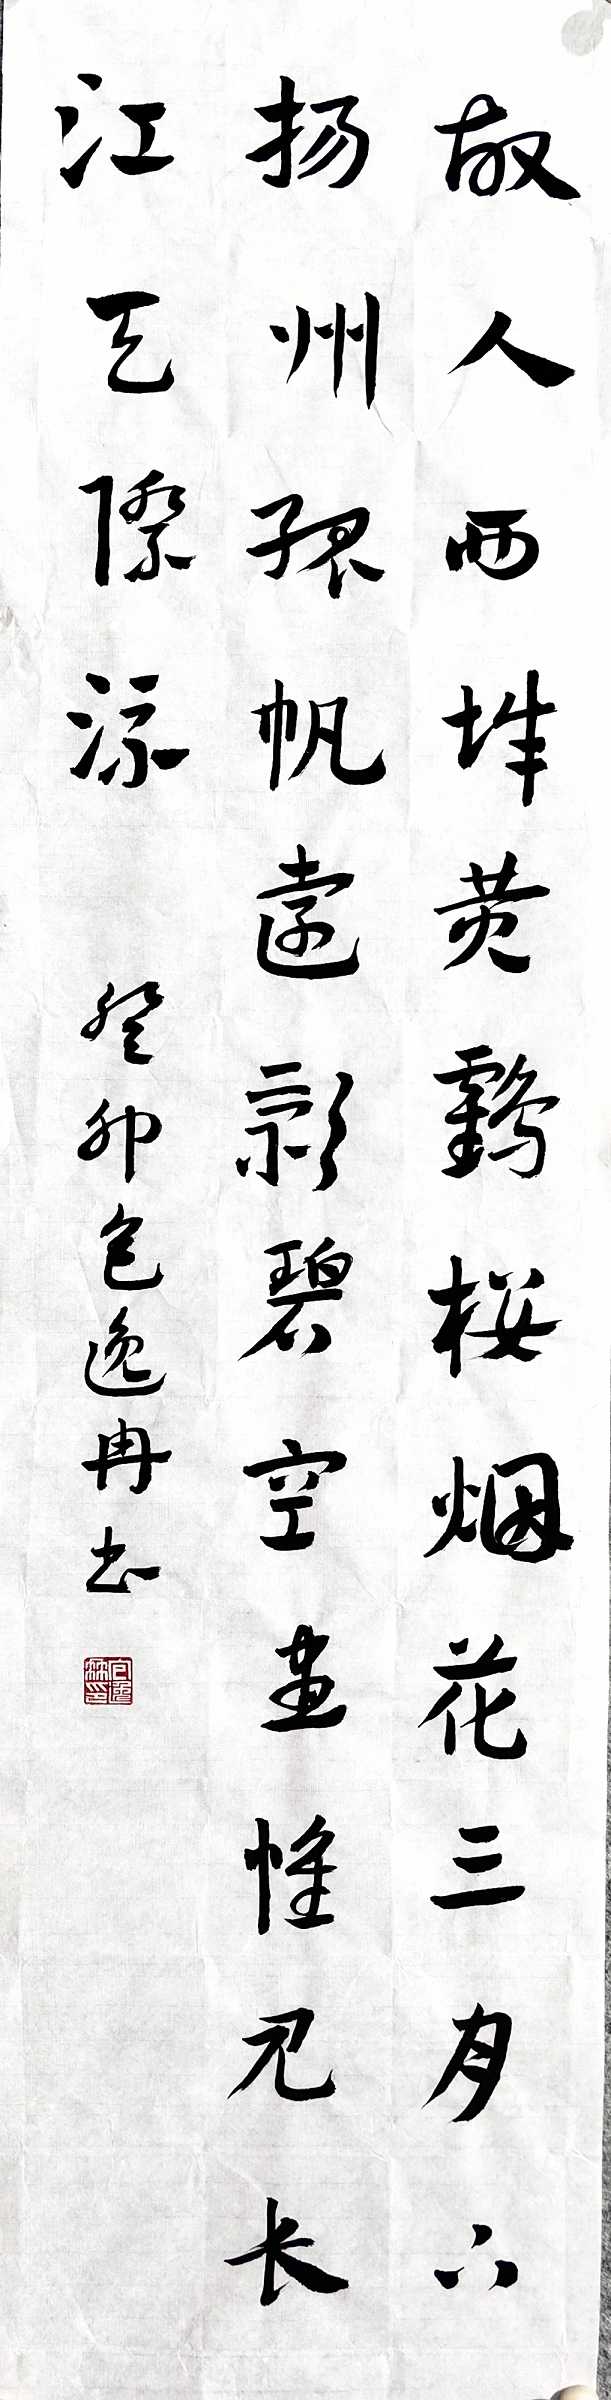 故人西辞黄鹤楼烟花三月下
扬州孤帆远影碧空尽惟见长
江天际流 癸卯包逸冉书